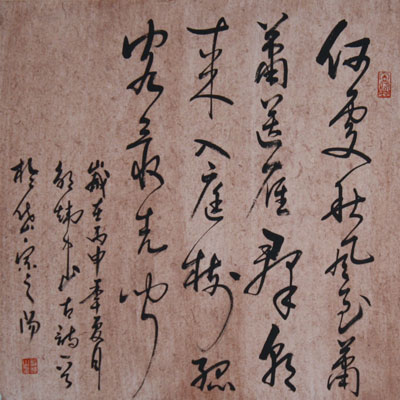 何處秋風至蕭
蕭送雁群朝
來入庭樹孤
客最先聞
歲在丙申年夏月
古詩一首
於岱宗之陽